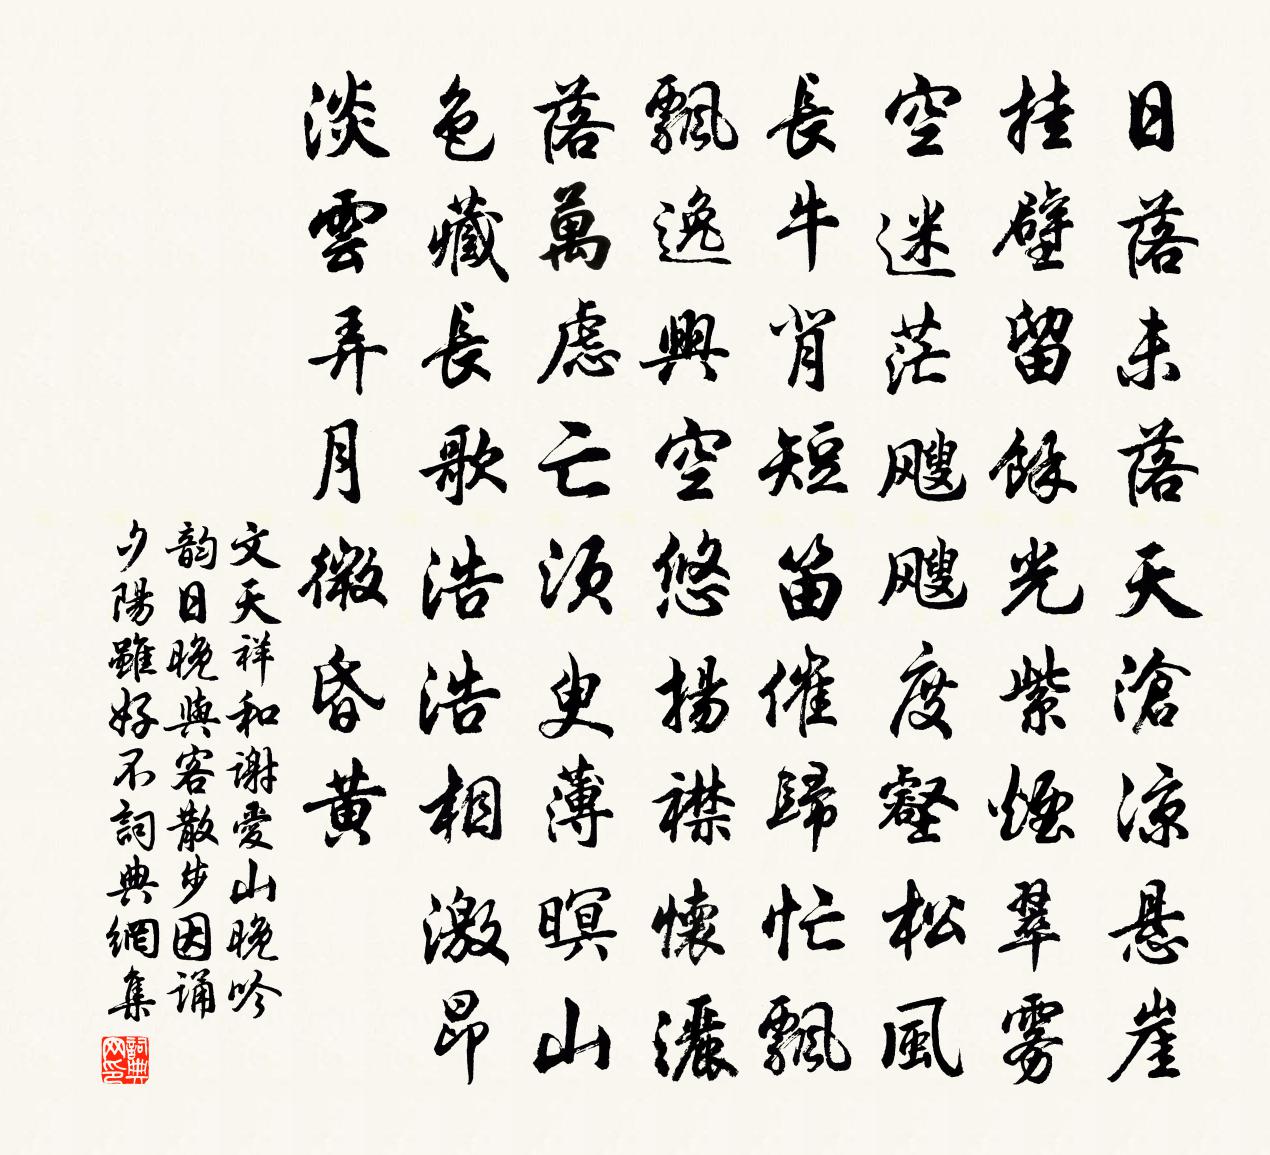 日落未落天滄涼悬崖
挂壁留餘光紫煙翠雾
空迷茫飕飕度壑松風
長牛背短笛催歸忙飄
飄逸興空悠揚襟懷灑
落萬慮亡須臾薄暝山
色藏長歌浩浩相激昂
淡雲弄月微昏黄
文天祥和謝愛山晚吟
韵日晚與客散步因誦
夕陽雖好不詞典網集
詞典网印